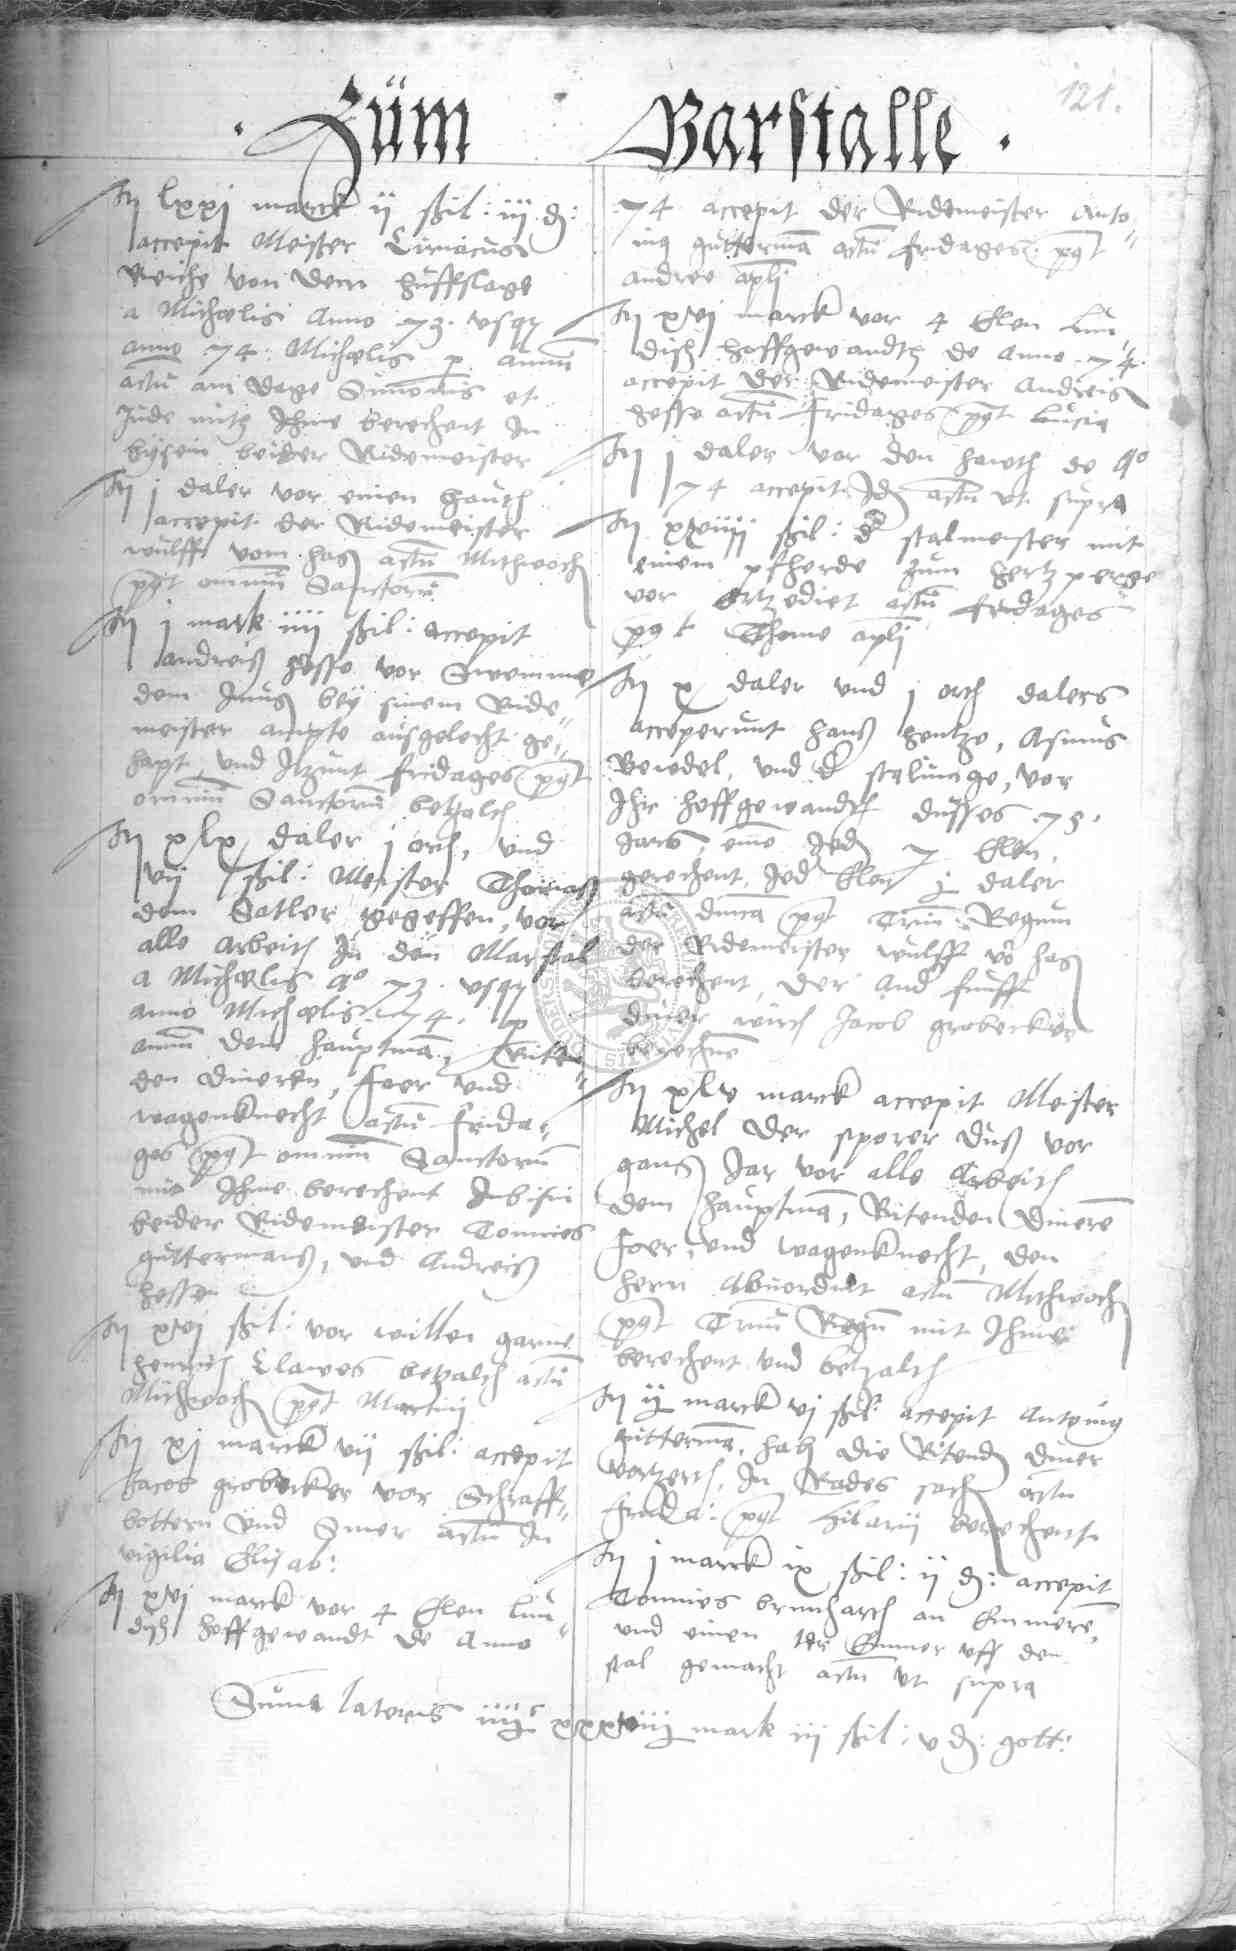 121.
Züm Marstalle.
Itz lxxj marck ij ßil: iij d:
accepit Meister Ciriacus
Reiche von dem huffslage
a Michaelis Anno 73. usqz
anno 74. Michaelis p annu
actu am dage Simonis et
Jude mitz Ihme berechent In
bysein beider Ridemeister
Itz j daler vor einen hauth
accepit der Ridemeister
wulff vom hag actu Mithwoch
pqt omniu Sanctoru
Itz j mark iiij ßil: accepit
andreiß hesse vor
dem bey sinem Ride
meister ampte ausgelecht ge
hapt, und Itzunt fridages pqt
omniu Sanctoru betzalth
Itz xlx daler j orth, und
vij ßil: Meister Thomaß
dem Satler gegeffen, vor
alle Arbeith In den Marstal
a Michaelis Ao 73. usqz
anno Michaelis 74. p
annu dem hauptma, Ritte
den dinern, foer und
wagenknecht actu frida
ges pqt omniu Sanctoru
mit Ihme berechent Inbisin
beider Ridemeister Tonnies
guttermanß, und Andreiß
hesse
Itz xvj ßil: vor wullen garne
henrich Clawes betzalth actu
Mithwoch pqt Martini
Itz xj marck vij ßil: accepit
Jacob grobecker vor Schaff
bottern und Smer actu In
vigilia Elisab:
Itz xvj marck vor 4 Elen Lun
dish hoffgewandt de Anno
74 accepit der Ridemeister Anto
nius gutterma actu fridages pqt
andree apli
Itz xvj marck vor 4 Elen Lun
dish hoffgewandth de Anno 74.
accepit der Ridemeister Andreiß
hesse actu fridages pqt Lucia
Itz j daler vor den hauth de Ao
74 accepit Id actu ut supra
Itz xxviij ßil: d stalmeister mit
einem pherde zum hertzperge
vor actu fridages
pqt Thome apli
Itz x daler und j orth dalers
acceperunt hanß hentze, Asmus
und d staljunge, vor
Ihr hoffgewandth dusses 75.
Jars, eine Jed 7 Elen,
gerechent, Jed Elen j daler
actu dnica pqt Triu Regum
der Ridemeister wulff vo hag
berechent, der And funff
diner wirth Jacob grobecker
berechne
Itz xlv marck accepit Meister
Michel der sporer duß vor
gang Jar vor alle Arbeith
dem hauptma, Ritenden dinere
foer, und wagenknecht, den
hern actu Mithwoch
pqt Triu Regu mit Ihme
berechent und betzalth
Itz ij marck vj ßil: accepit Antonius
gutterma, hath die Ritend diner
vortzerth, In Rades sach actu
frida: pqt hilarij berechent
Itz j marck ix ßil: ij d: accepit
Tonnies an Emmere,
und einen Emmer uff den
stal gemacht actu ut supra
Suma lateris iiijc xxxviij mark iij ßil: v d: gott: